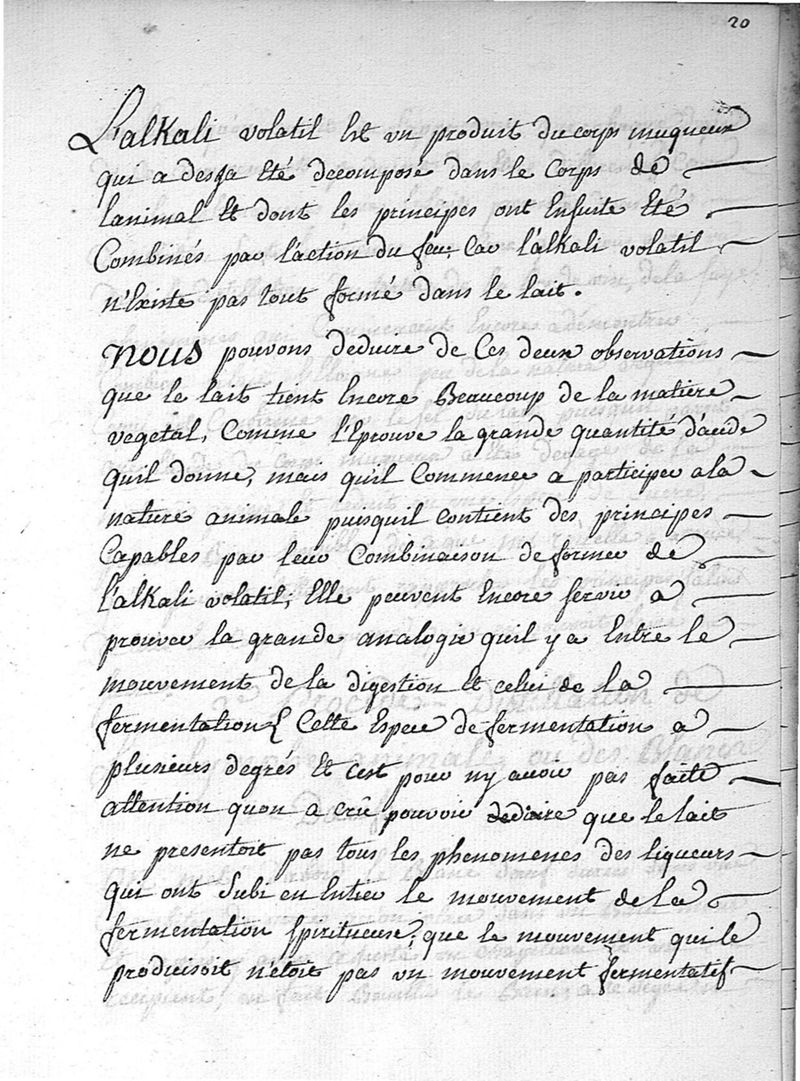 20
L'alKali volatil Est un produit du corps muqueux
qui a desja Eté decomposé dans le Corps de
lanimal Et dont les principes ont Ensuite Eté
Combinés par l'action du feu, Car l'alkali volatil
n'Existe pas tout formé dans le lait.
nous pouvons deduire de Ces deux observations
que le lait tient Encore Beaucoup de la matiere
vegetal, Comme l'Eprouve la grande quantité d'acide
quil donne, mais qu'il Commence a participer a la
nature animale puisquil contient des principes
Capables par leur Combinaison de former de
l'alkali volatil; Elle peuvent Encore servir a
prouver la grande analogie quil y a Entre le
mouvement de la digestion Et celui de la
fermentation { Cette Espece de fermentation a
plusieurs degrés Et c'est pour ny avoir pas faite
attention quon a crû pouvoir deduire que le lait
ne presentoit pas tous les phenomenes des liqueurs
qui ont Subi en Entier le mouvement de la
fermentation spiritueuse, que le mouvement qui le
produisoit n'etoit pas un mouvement fermentatif